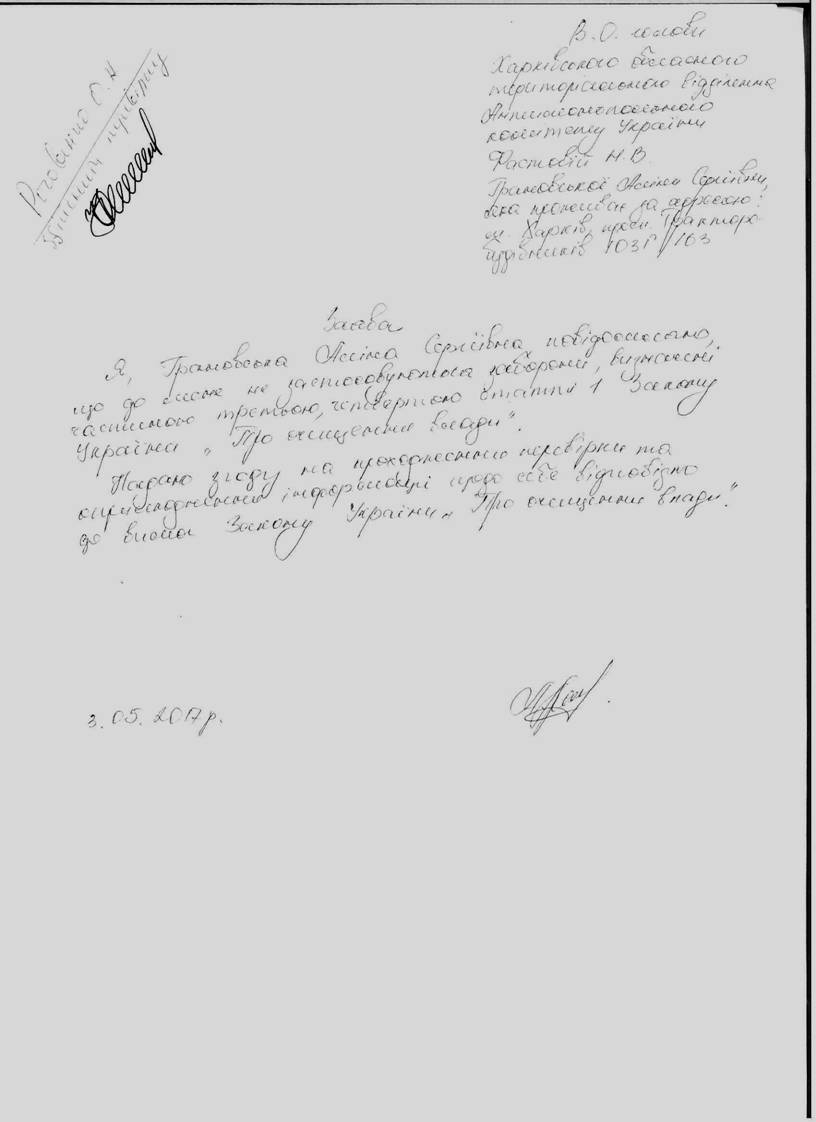 В.О. голови
Харківського обласного
територіального відділення
Антимонопольного
комітету України
Фастовій Н.В.
Грановської Аліни Сергіївни,
яка проживає за адресою:
м. Харків, просп. Тракторо-
будівників 103Г/163
Заява
Я, Грановська Аліна Сергіївна повідомляю,
що до мене не застосовуються заборони, визначені
частиною третьою, четвертою статті 1 Закону
України „Про очищення влади".
Надаю згоду на проходження перевірки та
оприлюднення інформації щодо себе відповідно
до вимог Закону України „Про очищення влади".
3.05.2017р.